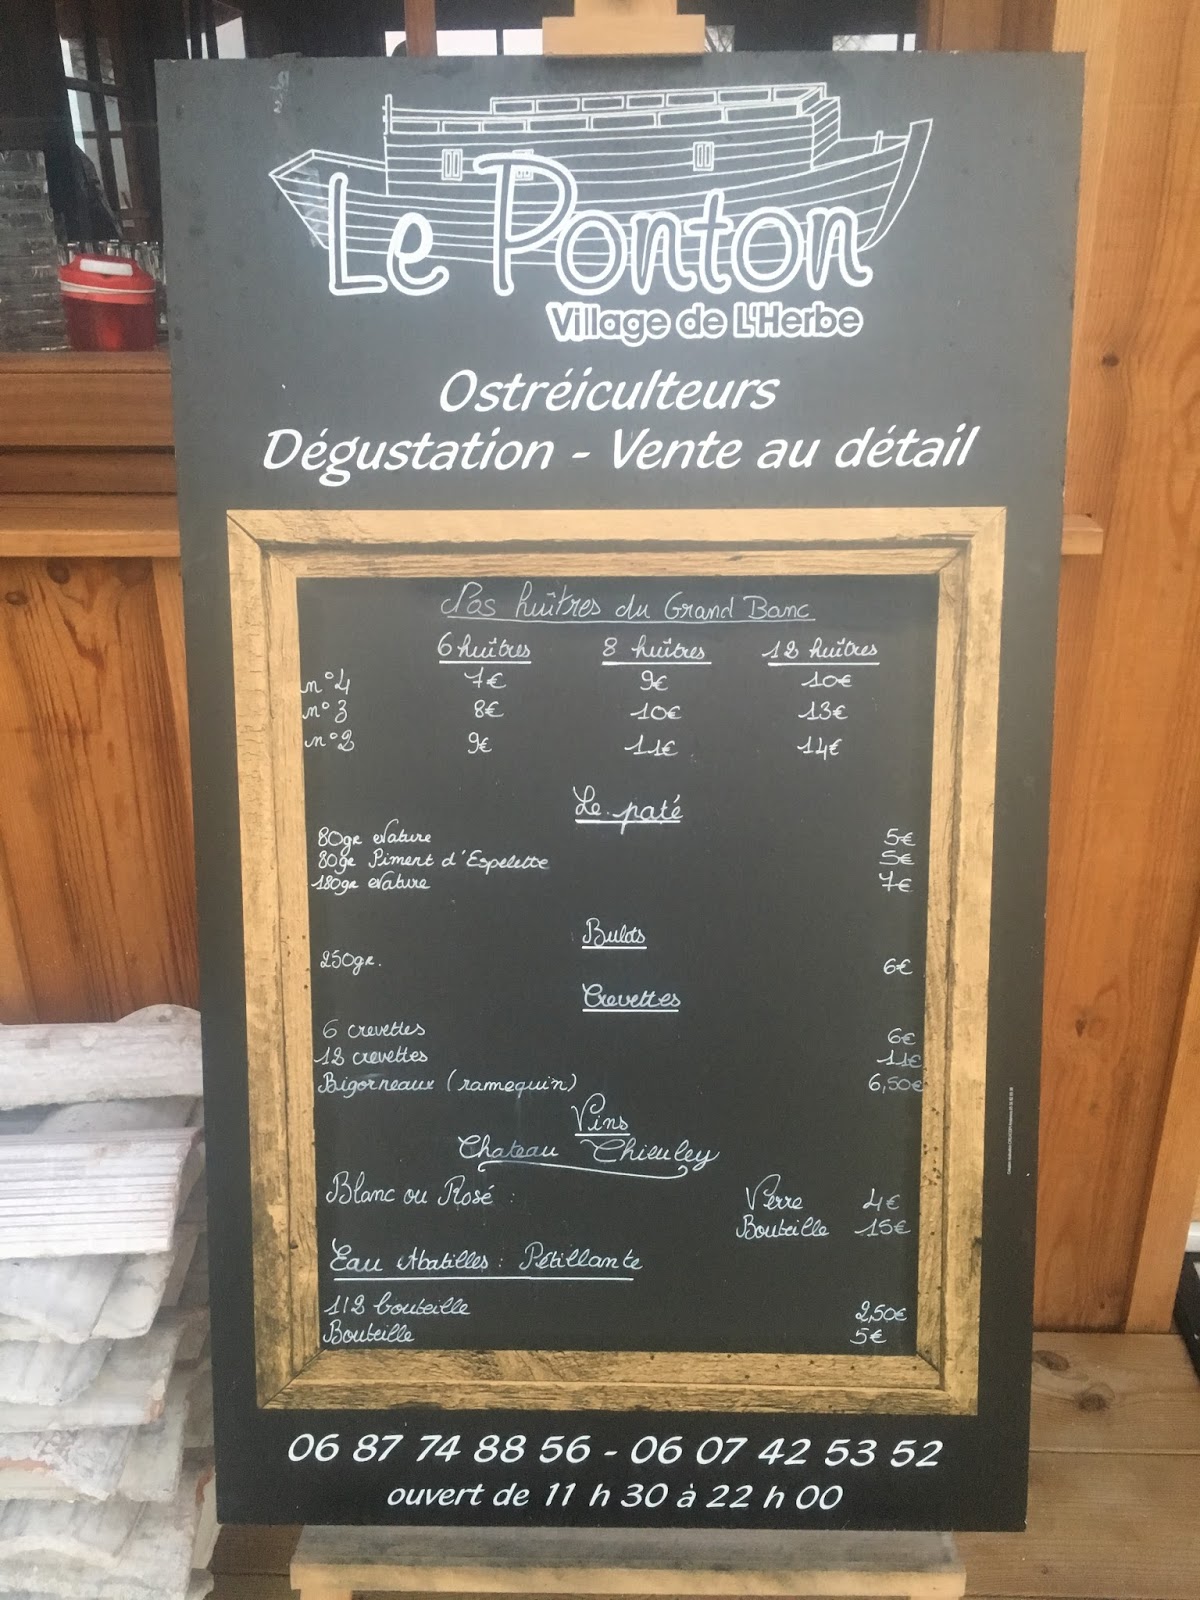 Le Ponton
Village de L'Herbe
Ostréiculteurs
Dégustation - Vente au détail
Nos huîtres du Grand Banc
6 huîtres 8 huîtres 12 huîtres
n°4 7€ 9€ 10€
n°3 8€ 10€ 13€
n°2 9€ 11€ 14€
Le paté
80gr Nature 5€
80gr Piment d'Espelette 5€
180gr Nature 7€
Bulots
250gr. 6€
Crevettes
6 crevettes 6€
12 crevettes 11€
Bigorneaux (ramequin) 6,50€
Vins
Chateau Chieuley
Blanc ou Rosé : Verre 4€
Bouteille 15€
Eau Abatilles : Pétillante
1/2 bouteille 2,50€
Bouteille 5€
06 87 74 88 56 - 06 07 42 53 52
ouvert de 11 h 30 à 22 h 00